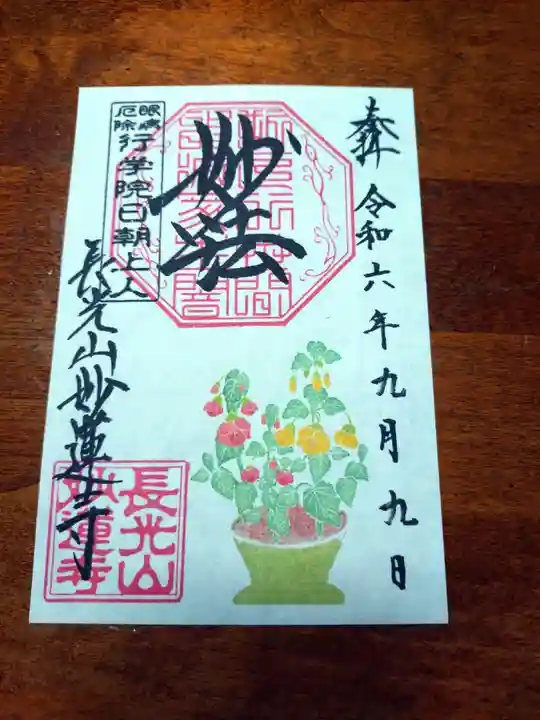 奉拝 令和六年九月九日
妙法
眼病
厄除
行学院日朝上人
長光山妙蓮寺
長光山
妙蓮寺